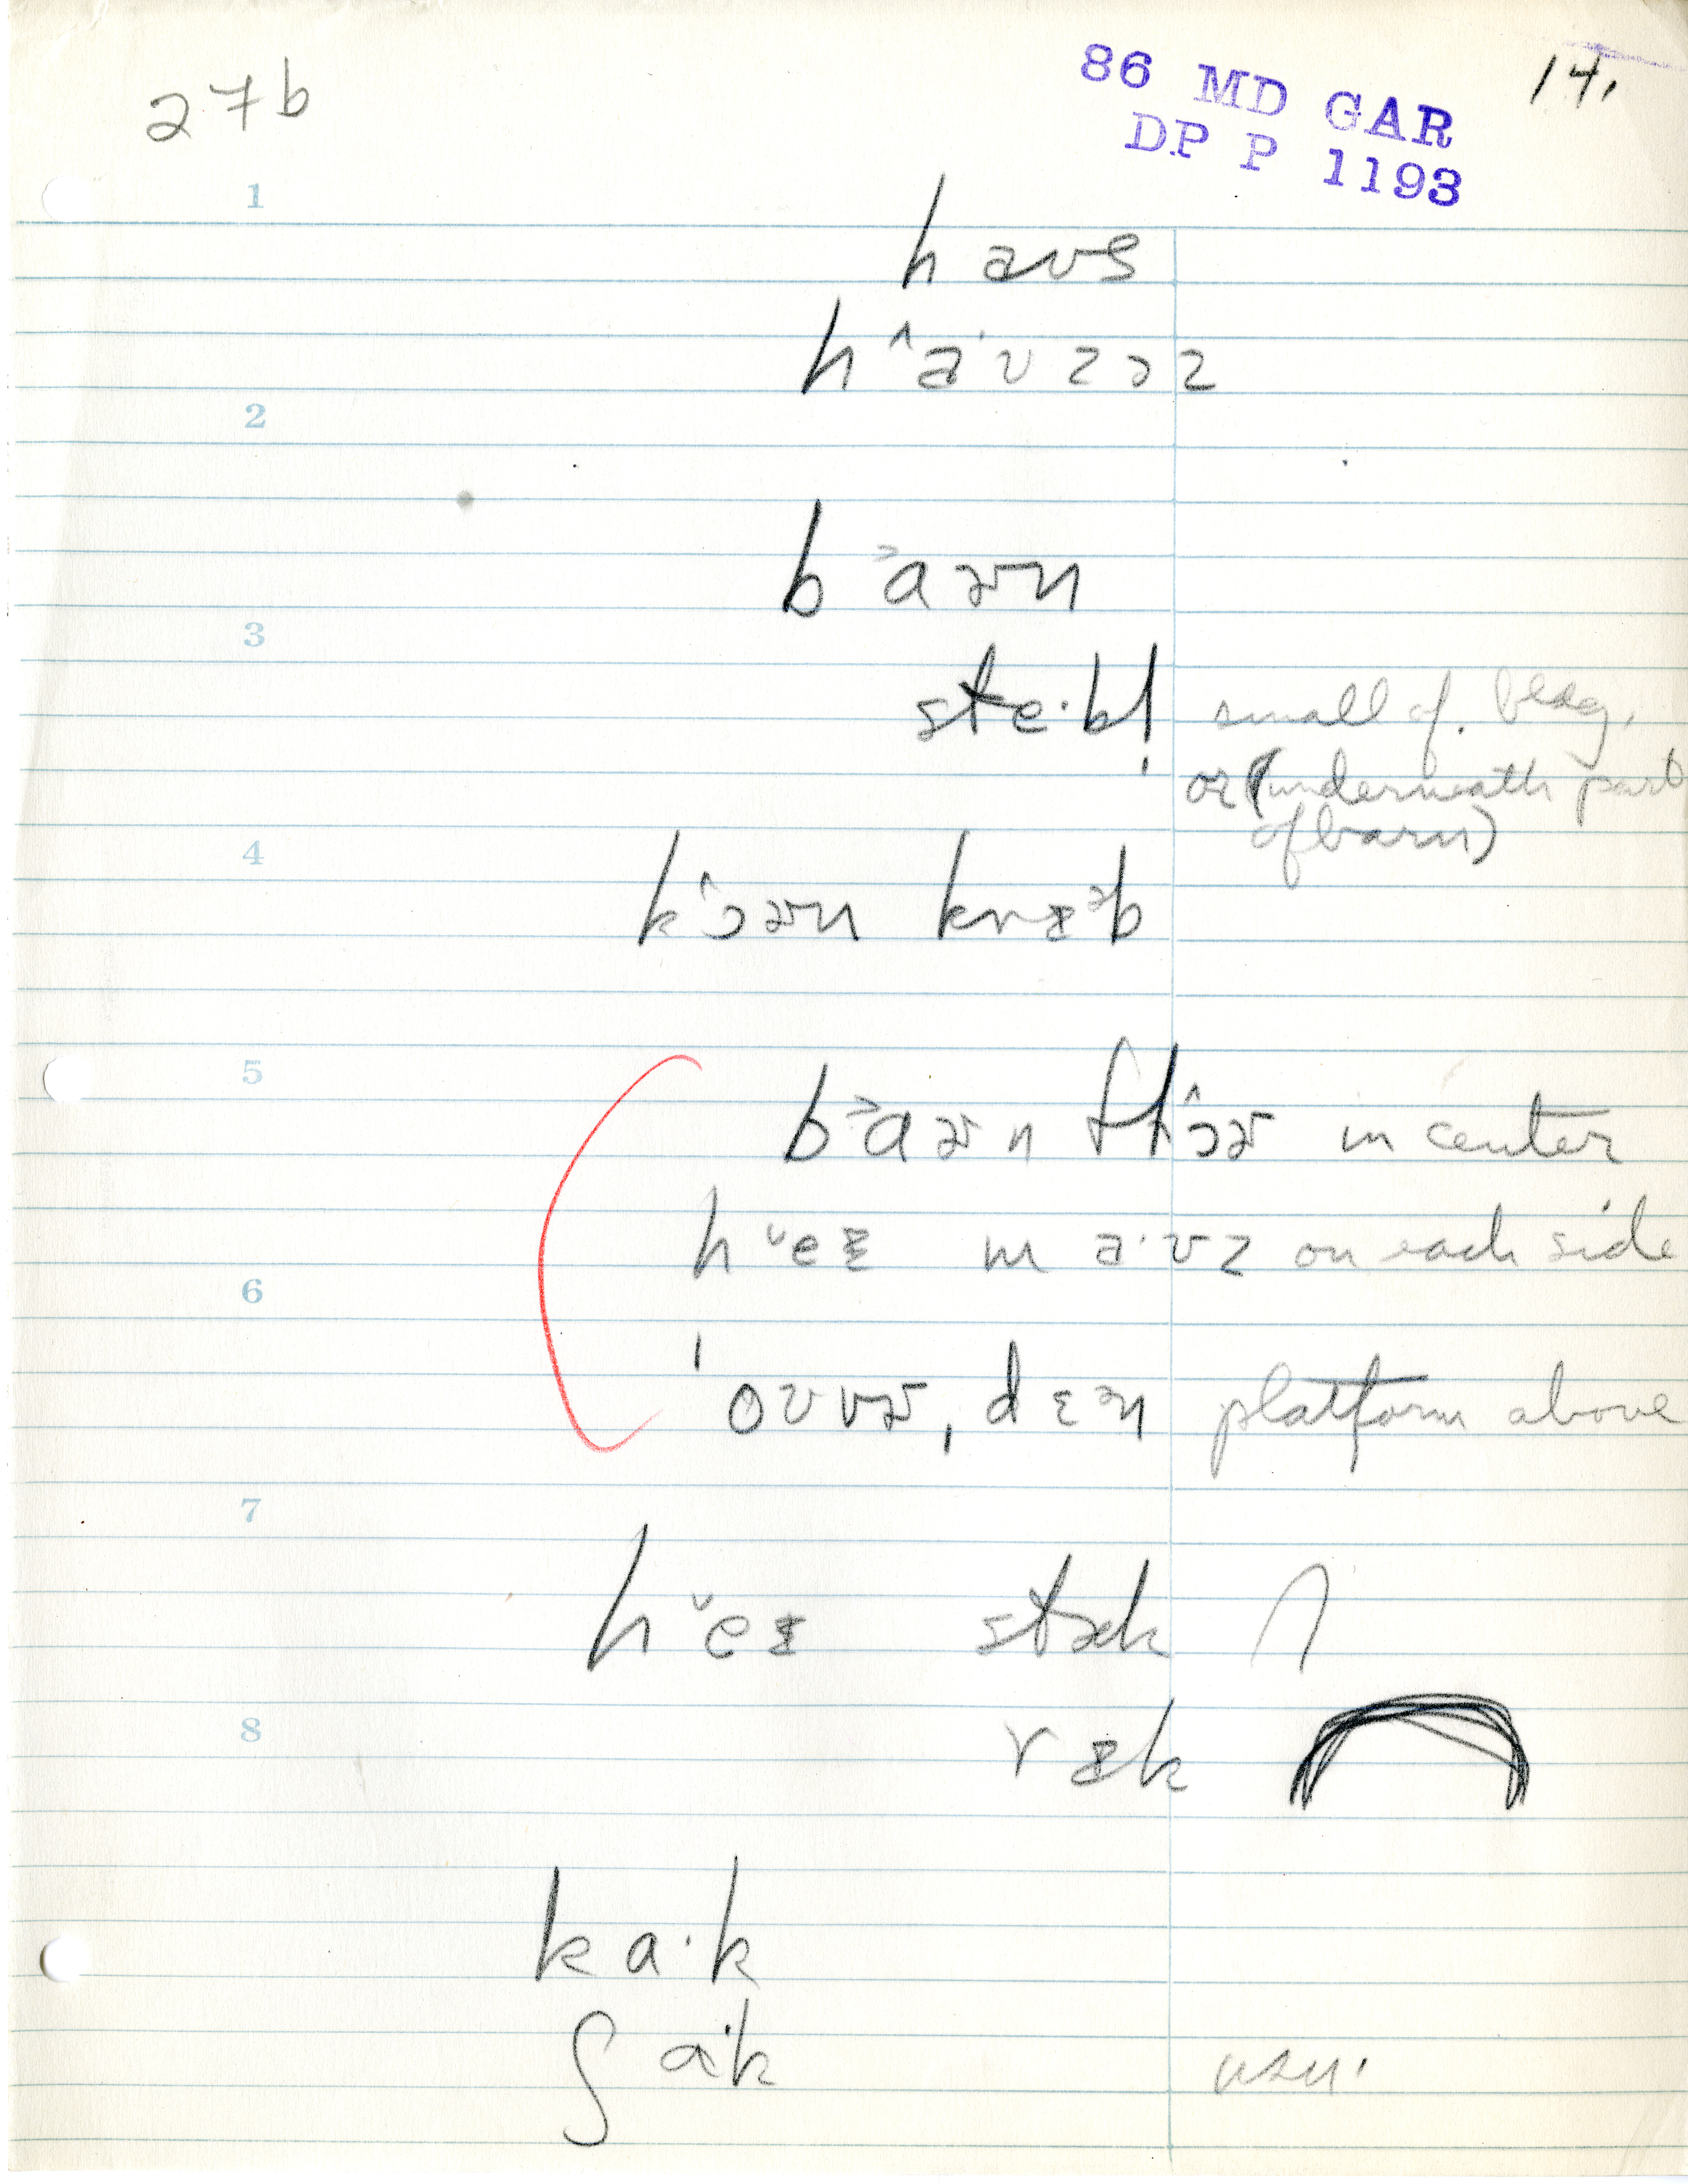 27b
86 MD GAR
DP P 1193
14.
1
haʊs
h^a·ʊzəz
2
b˃aɚn
3
ste·bl̩ small of. bldg.
or (underneath part
of barn)
4
k^ɔɚn kræᵊb
5
b˃aɚn fl^ɔɚ in center
h˅eɪ m a·ʊz on each side
6
ˈoʊvɚˌdɛᵊn platform above
7
h˅eɪ stæk
8
ræk
ka·k
ʃa·k usu.